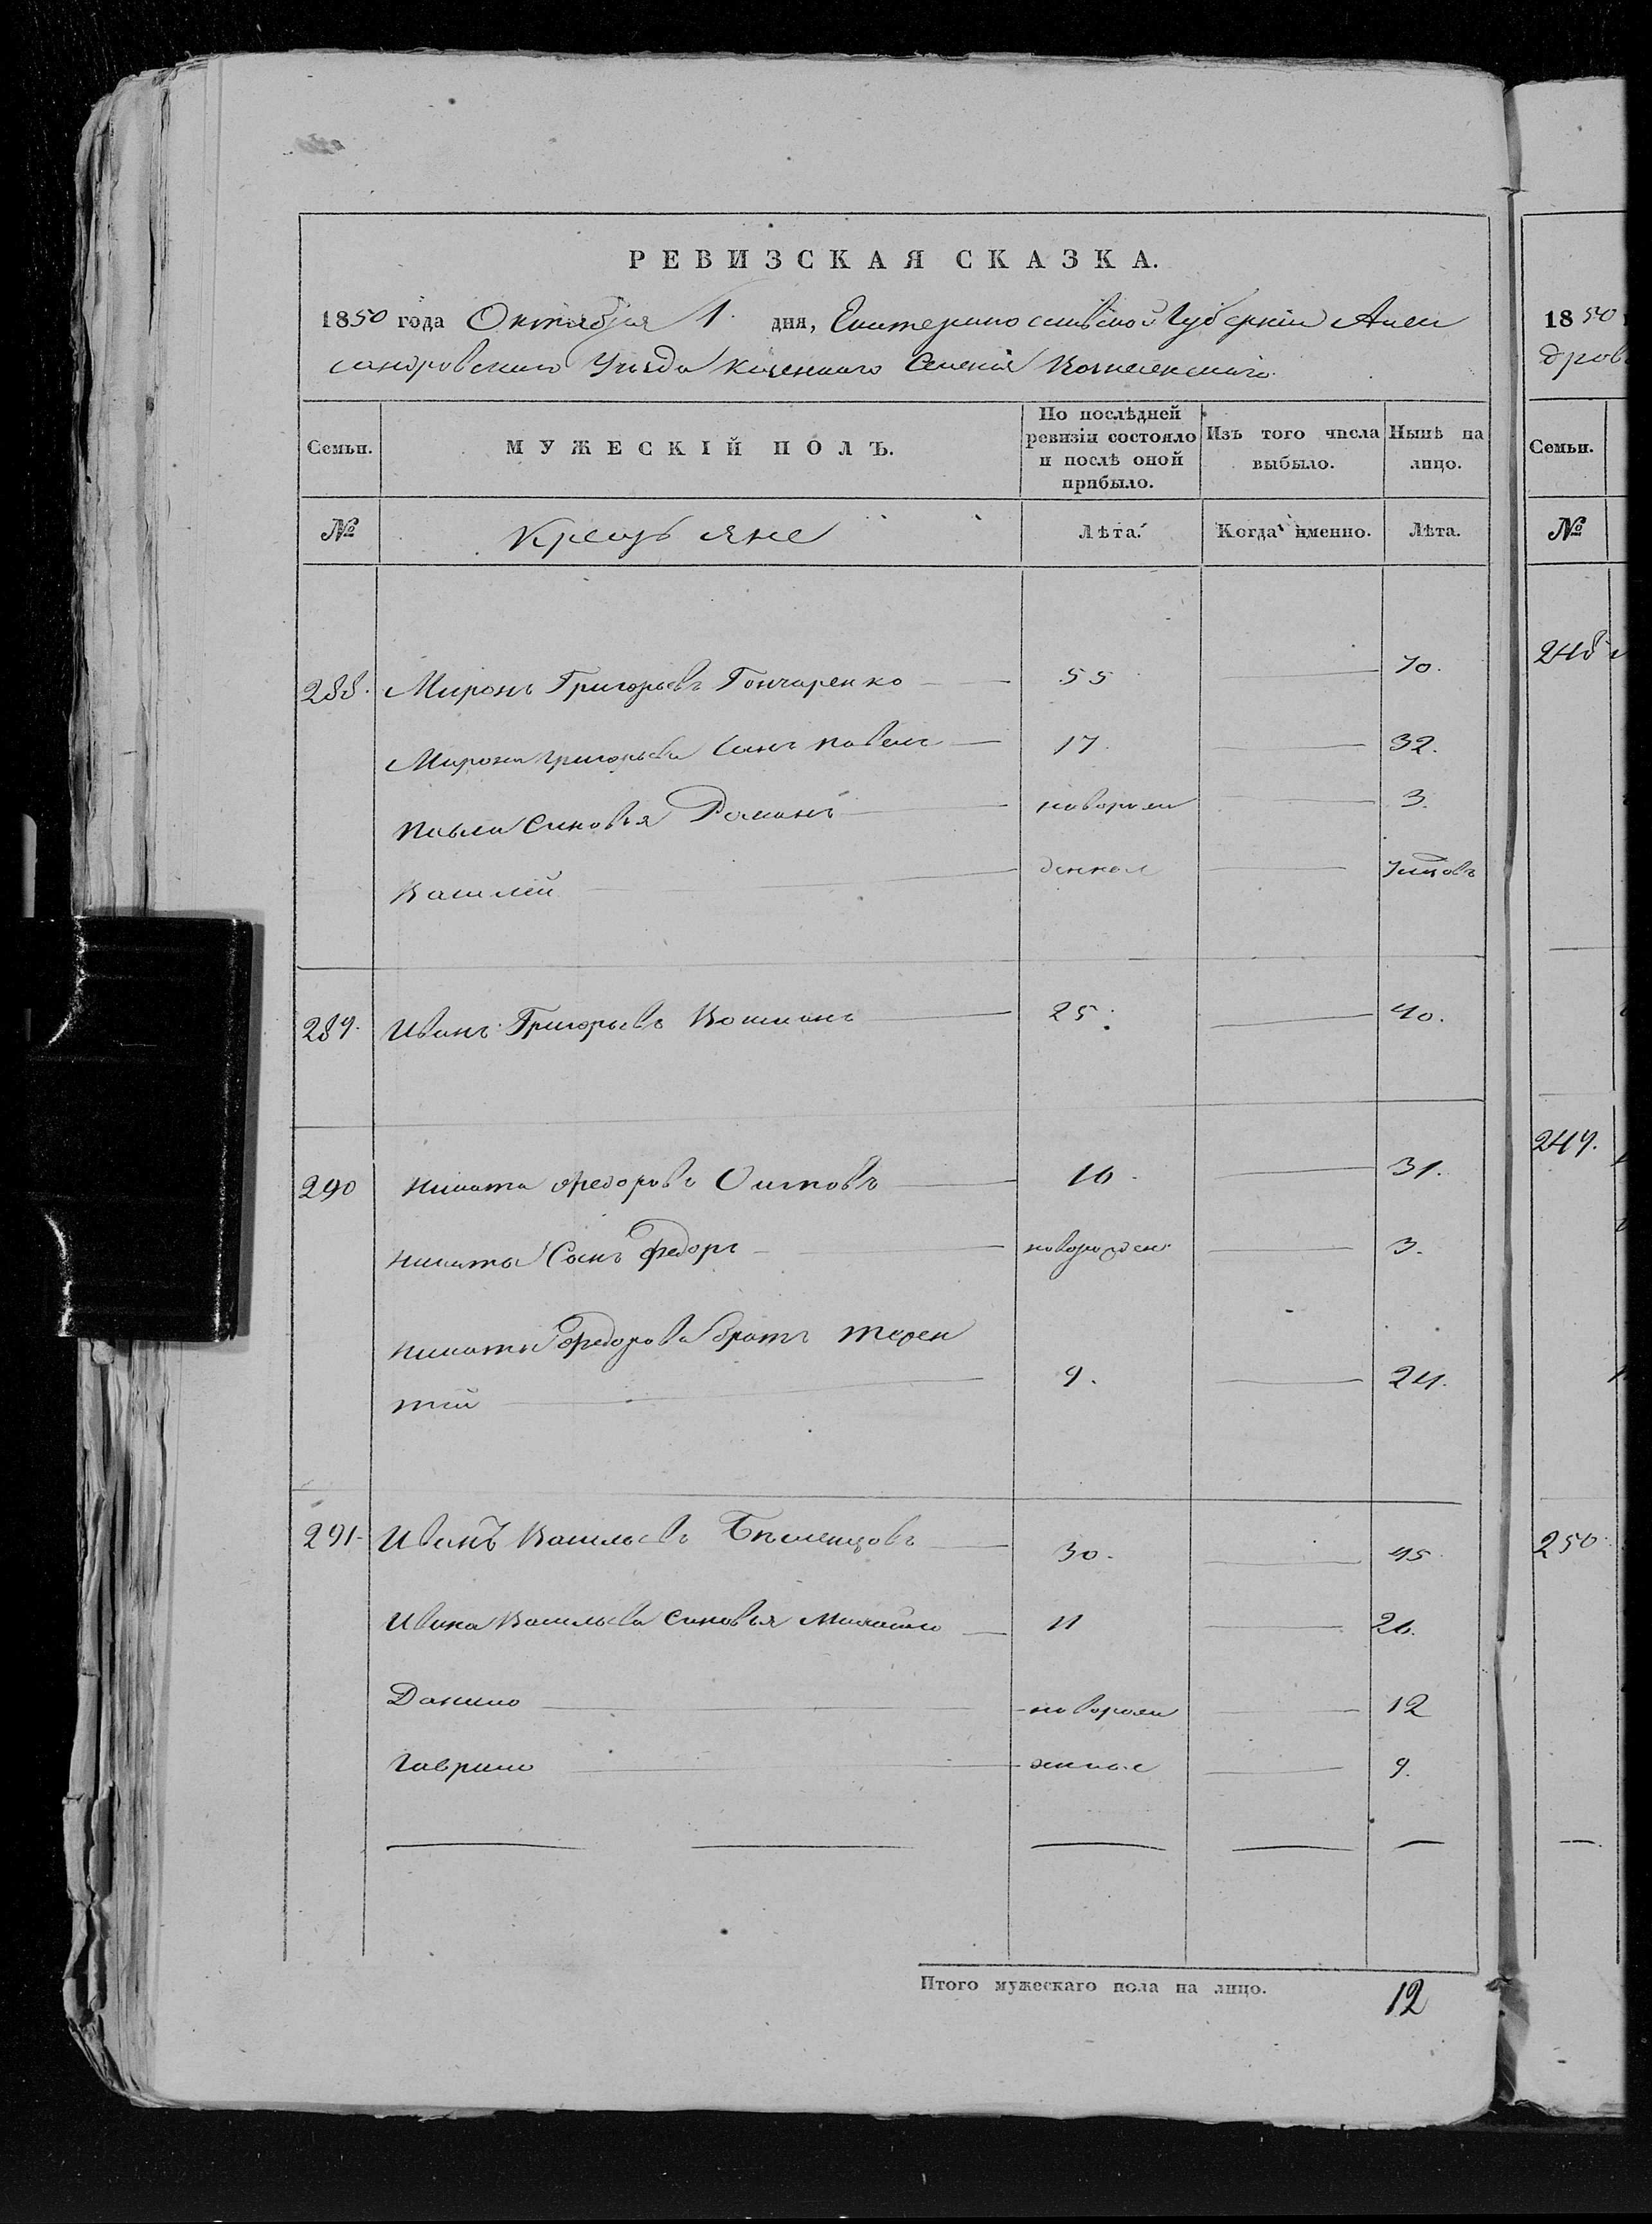 РЕВИЗСКАЯ СКАЗКА.
1850 года Октября 1. дня, Екатеринославской Губернiи Алек
сандровского Уезда казенного Селенiя Вознесенского.
Семьи. МУЖЕСКIЙ ПОЛЪ. По послѣдней ревизiи состояло и послѣ оной прибыло. Изъ того числа выбыло. Нынѣ на лицо.
№ Крестьяне Лѣта. Когда именно. Лѣта.
288. Миронъ Григорьевъ Гончаренко 55 70.
Мирона Григорьева Сынъ Павелъ 17. 32.
Павла Сыновья Романъ новорож 3.
Василей денные
289. Иванъ Григорьевъ 25. 40.
290 Никита Федоровъ 16. 31.
Никиты Сынъ Федоръ новорожден. 3.
Никиты Федорова братъ Терен
тiй 9. 24.
291. Иванъ Васильевъ 30. 45.
Ивана Васильева Сыновья Михайло 11 26.
Данило новорож 12
Гаврило денные 9.
Итого мужескаго пола на лицо. 12
1850
дров
Семьи.
№
248
249.
250.